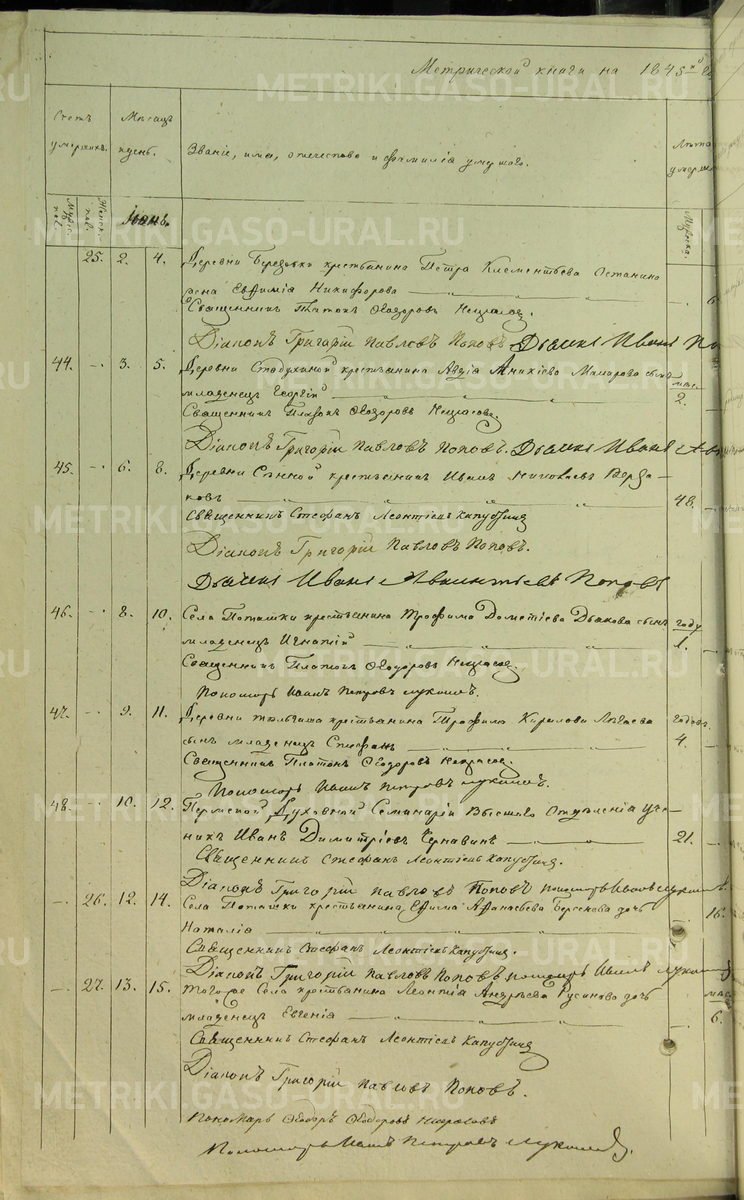 Метрической книги на 1845й
Счетъ умершихъ.
Мѣсяцъ и день.
Званіе, имя, отечество и фамилія умершаго.
Лѣта
Мужеска пол.
Женск. пол.
Іюнь.
Мужеска.
25. 2. 4. Деревни Березовки крестьянина Петра Клементьева Останина
жена Евфимія Никифорова
Священникъ Платонъ Ѳеодоровъ Некрасовъ.
Діаконъ Григорій Павловъ Поповъ. Дьячекъ Иванъ
44. - 3. 5. Деревни крестьянина Авдія Аникіева сынъ мѣс.
младенецъ Георгій 2.
Священникъ Платонъ Ѳеодоровъ Некрасовъ.
Діаконъ Григорій Павловъ Поповъ. Дьячекъ Иванъ
45. - 6. 8. Деревни Сѣнной крестьянинъ Иванъ Николаевъ Верза-
ковъ 48.
Священникъ Стефанъ Леонтіевъ Капустинъ
Діаконъ Григорій Павловъ Поповъ.
Дьячекъ Иванъ Поповъ
46. - 8. 10. Села Поташки крестьянина Трофима Дометіева Дьякова сынъ году
младенецъ Игнатій 1.
Священникъ Платонъ Ѳеодоровъ Некрасовъ.
Пономарь Иванъ Петровъ Лукинъ.
47. - 9. 11. Деревни крестьянина Трофима Кирилова сынъ годовъ
младенецъ Стефанъ 4.
Священникъ Платонъ Ѳеодоровъ Некрасовъ.
Пономарь Иванъ Петровъ Лукинъ.
48. - 10. 12. Пермской Духовной Семинаріи Высшаго Отдѣленія уче-
никъ Иванъ Димитріевъ Чернавинъ 21.
Священникъ Стефанъ Леонтіевъ Капустинъ.
Діаконъ Григорій Павловъ Поповъ пономарь Иванъ Лукинъ
- 26. 12. 14. Села Поташки крестьянина Ефима Афанасьева дочь
Наталія 16.
Священникъ Стефанъ Леонтіевъ Капустинъ.
Діаконъ Григорій Павловъ Поповъ пономарь Иванъ Лукинъ
- 27. 13. 15. Тогоже Села крестьянина Леонтія Андреева Русинова дочь мѣс.
младенецъ Евгенія 6.
Священникъ Стефанъ Леонтіевъ Капустинъ
Діаконъ Григорій Павловъ Поповъ.
Пономарь Ѳеодоръ Ѳеодоровъ Некрасовъ
Пономарь Иванъ Петровъ Лукинъ.
METRIKI.GASO-URAL.RU